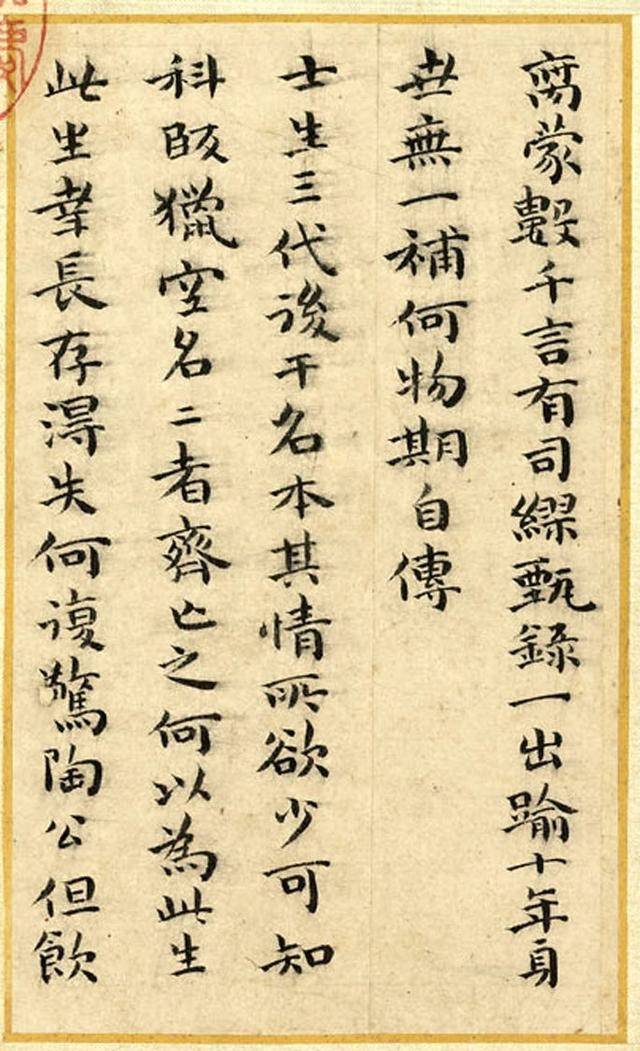 蒙數千言有司繆甄錄一出踰十年身
世無一補何物期自傳
士生三代後干名本其情所欲少可知
科獵空名二者齊亡之何以為此生
此生幸長存得失何復驚陶公但飲